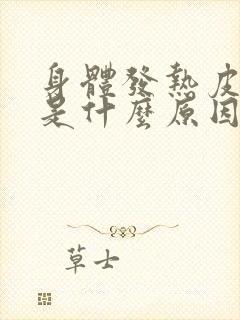 身體發熱皮
是什麼原因
草士